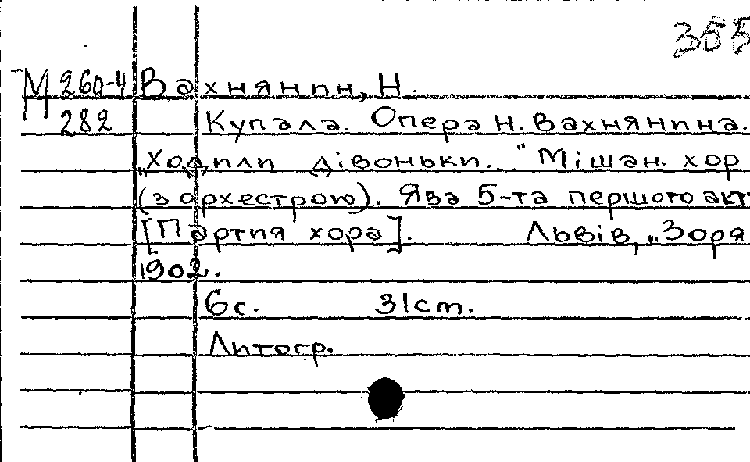 355
М 260-4 Вахнянин, Н.
282 Купала. Опера Н. Вахнянина.
„Ходили дівоньки." Мішан. хор
(з орхестрою). Ява 5-та першого акт
[Партия хора]. Львів, „Зоря
1902.
6с. 31ст.
Литогр.